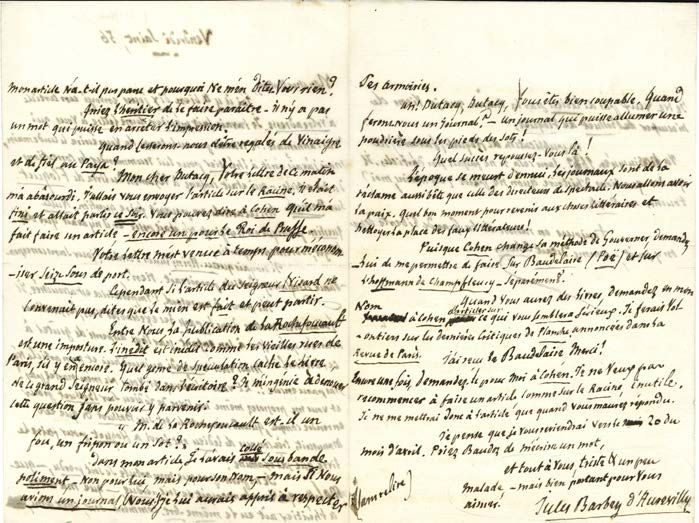 Vendredi Saint 56
mon article N'a-t-il pas paru et pourquoi Ne m'en Dites Vous rien?
l'héritier de le faire paraître – il n'y a pas
un mot qui puisse en arrêter l'impression.
Quand cesserons nous d'être regalés de Vinaigre
et de fiel au Pays?
Mon cher Dutacq, Votre lettre de ce matin
m'a abasourdi. J'allais vous envoyer l'article sur le Racine, il était
fini et allait partir ce soir. Vous pouvez dire à Cohen qu'il m'a
fait faire un article – encore un pour le Roi de Prusse.
Votre lettre m'est venue à temps pour m'économ
-iser seize sous de port.
Cependant si l'article du Seigneur Nisard ne
convenait pas, dites que le mien est fait et peut partir.
Entre Nous la publication de La Rochefoucault
est une imposture. L'inédit est inédit comme les vieilles rues de
Paris, s'il y en a encore. Quel genre de spéculation cache là derrière
Ne le grand Seigneur tombé dans l'écritoire? Je m'ingénie à dénouer
cette question sans pouvoir y parvenir.
M. de la Rochefoucault est-il un
fou, un fripon ou un Sot?
Dans mon article, Je l'avais collé Sous bande
poliment – Non pour lui mais pour son Nom – mais Si Nous
avions un journal (Nous) je lui aurais appris à respecter
Ses armoiries.
Ah! Dutacq, Dutacq, Vous êtes bien coupable. Quand
ferons nous un journal? – un journal qui puisse allumer une
poudrière sous les pieds des sots!
Quel succès repoussez-Vous là!
L'époque se meurt d'ennui. Les journaux sont de la
réclame aussi bête que celle des directeurs de spectacle. Nous allons avoir
la paix. Quel bon moment pour revenir aux choses littéraires et
nettoyer la place des faux littérateurs!
Puisque Cohen change sa méthode de Gouverner demandez
-lui de me permettre de faire Sur Baudelaire (Poe) et sur
l'hoffmann de Champfleury – Séparément.
Quand Vous aurez des livres, demandez en mon
Nom à Cohen ce qui vous semblera Sérieux. Je ferais Vol
-ontiers sur les dernières Critiques de Planche, annoncées dans la
Revue de Paris.
J'ai reçu le Baudelaire Merci!
Encore une fois, demandez le pour moi à Cohen. Je ne Veux pas
recommencer à faire un article comme sur le Racine, inutile.
Je ne me mettrai donc à l'article que quand vous m'aurez répondu.
Je pense que je vous reviendrai vers le 20 du
mois d'avril. Priez Baudez de m'écrire un mot,
et tout à Vous, triste & un peu
malade – mais bien portant pour Vous
aimer!
Jules Barbey d'Aurevilly